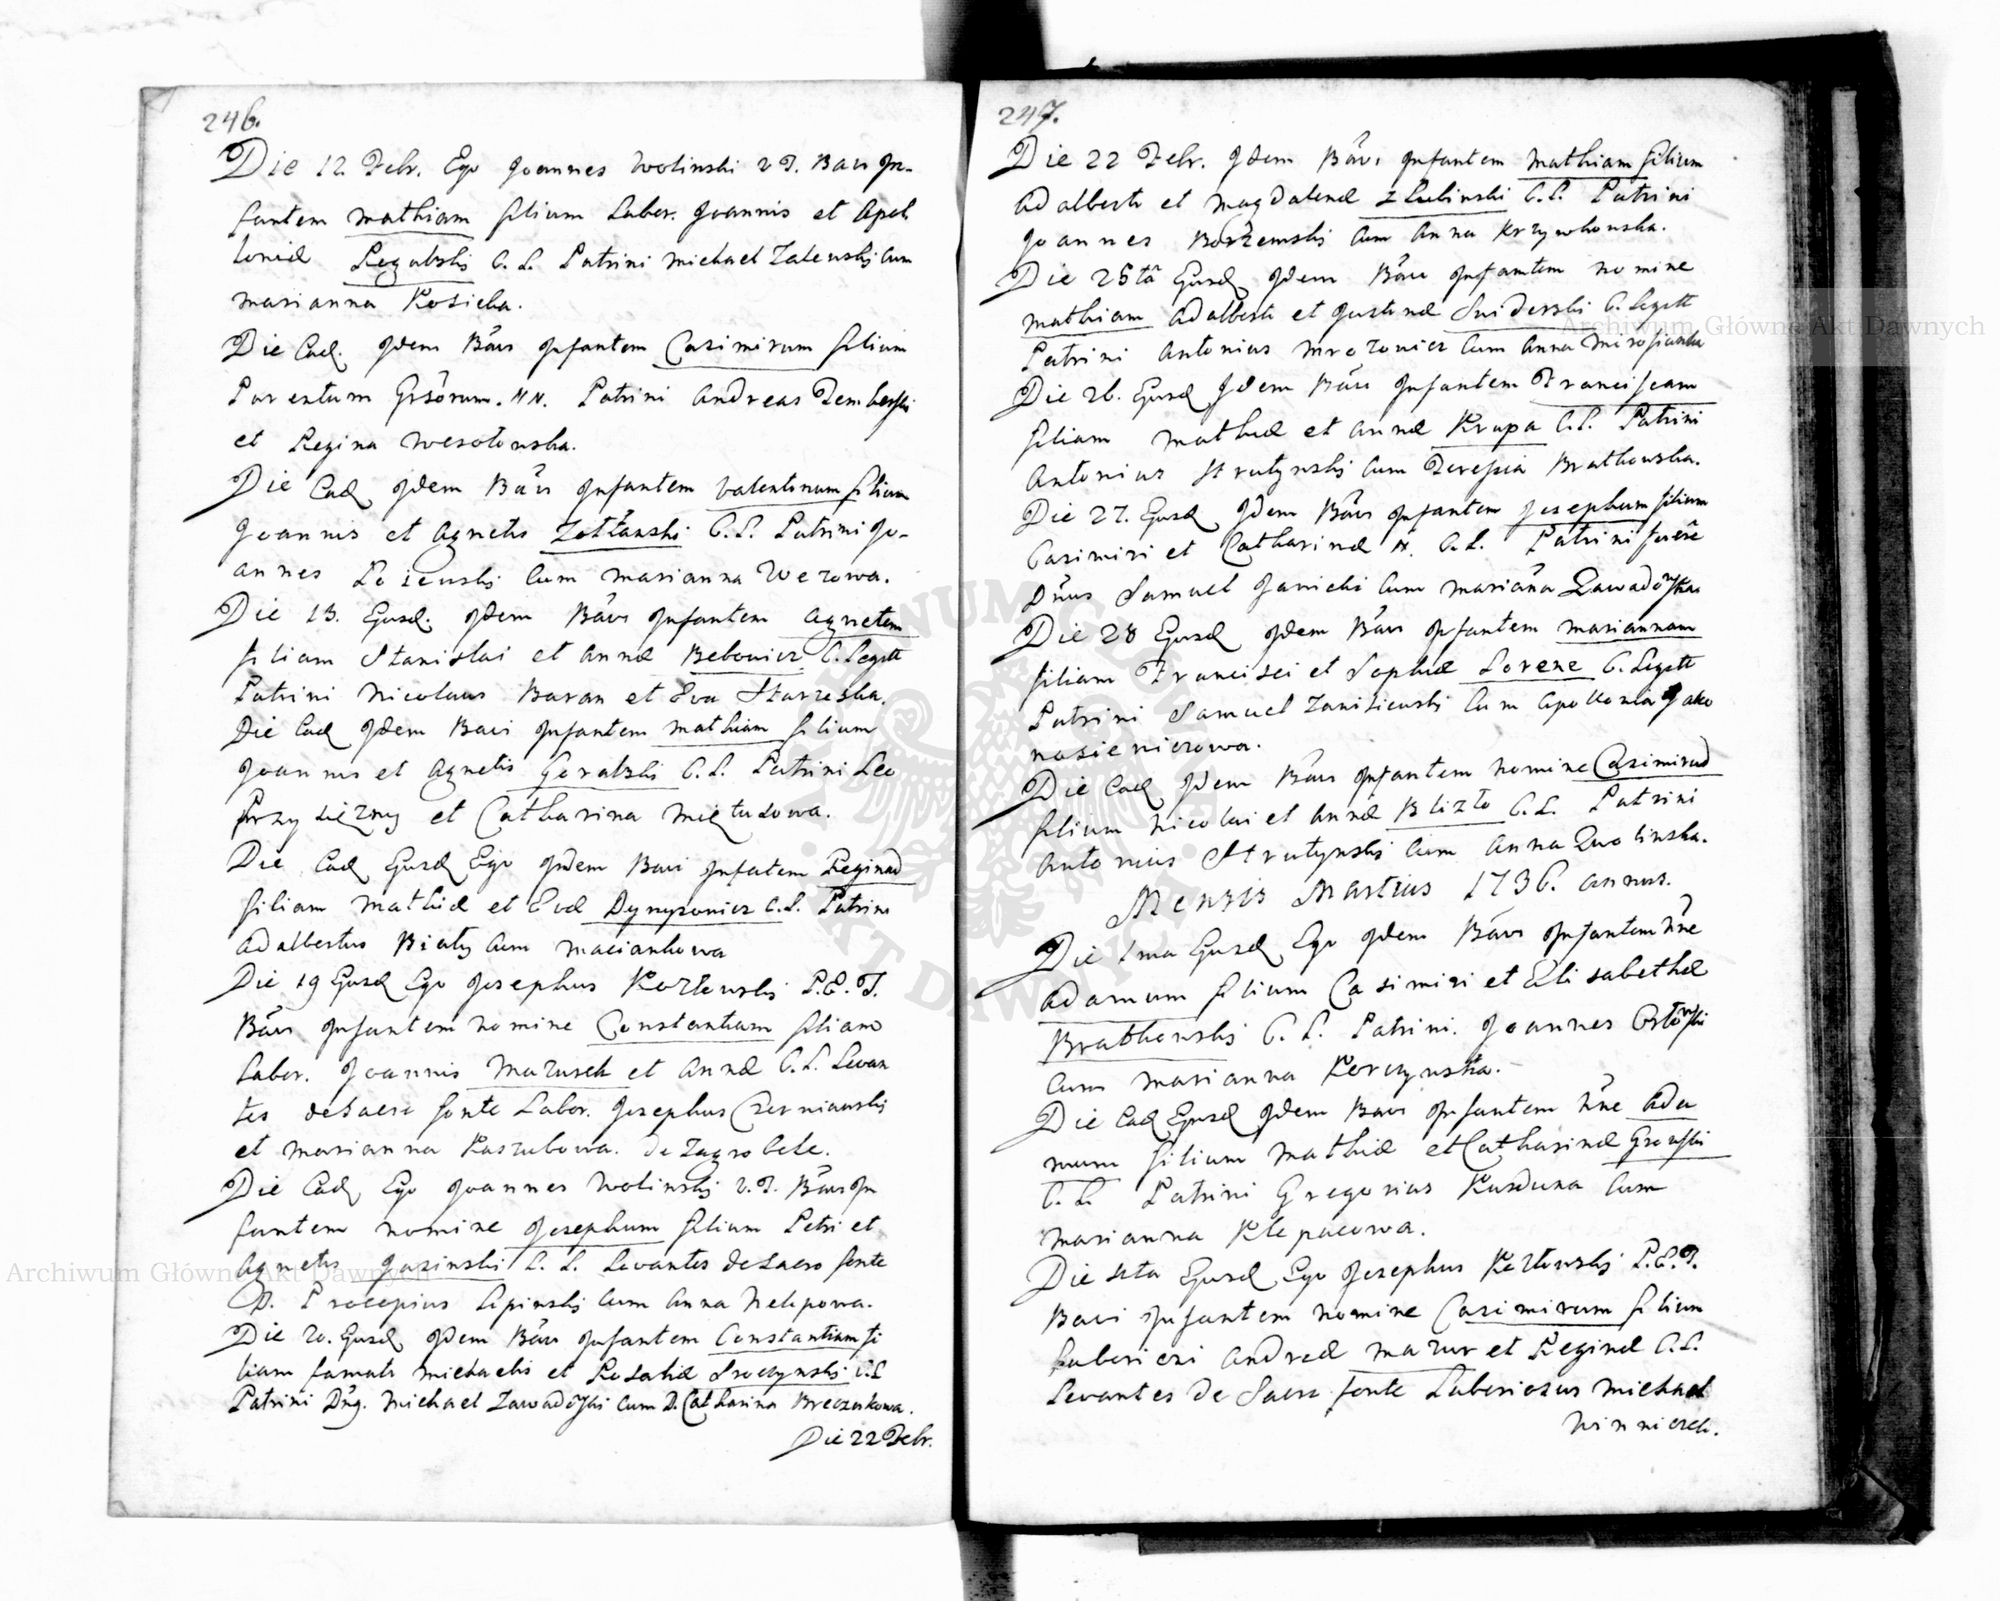 246.
Die 12. Febr. Ego Joannes Wolinski V.T. Bavi In-
fantem Mathiam filium Labor. Joannis et Apol
loniæ Regulski C. L. Patrini Michael Zalenskj cum
Marianna Kosicka.
Die Ead. Idem Bavi Infantem Casimirum filium
Parentum Grsorum. NN. Patrini Andreas
et Regina Wesołowska.
Die Ead Idem Bavi Infantem Valentinum filium
Joannis et Agnetis C. L. Patrini Jo-
annes cum Marianna Wezowa.
Die 13. Eiusd. Idem Bavi Infantem Agnetem
filiam Stanislai et Annæ Bebowicz C. Legitt
Patrini Nicolaus Baran et Eva Skarzeska.
Die Ead Idem Bavi Infantem Mathiam filium
Joannis et Agnetis Goralski C. L. Patrini Leo
Przysiężny et Catharina Miętusowa.
Die Ead Eiusd Ego Idem Bavi Infatem Reginā
filiam Mathiæ et Evæ C. L. Patrini
Adalbertus Biały cum Maciankowa
Die 19 Eiusd Ego Josephus Kozłowskj P.C.T.
Bavi Infantem nomine Constantiam filiam
Labor. Joannis Mazurek et Annæ C. L. Levan
tes de Sacro fonte Labor. Josephus Czerniawskj
et Marianna Kaszubowa. de Zagrobele.
Die Ead Ego Joannes Wolinskj V.T. Bavi In
fantem nomine Josephum filium Petri et
Agnetis Jasinski C. L. Levantes de Sacro fonte
D. Procopius Lipinskj cum Anna Nelepowa.
Die 20. Eiusd Idem Bavi Infantem Constantiam fi
liam famati Michaelis et Rosaliæ Sroczynskj C.L
Patrini Dng. Michael Zawadowski cum D. Catharina Breczukowa.
Die 22 Febr.
247.
Die 22 Febr. Idem Bavi Infantem Mathiam filium
Adalberti et Magdalenæ C. L. Patrini
Joannes Borzemskj cum Anna Krzywkowska.
Die 25tā Eiusd Idem Bavi Infantem nomine
Mathiam Adalberti et Justinæ Swiderski C. Legitt
Patrini Antonius Mrozowicz cum Anna
Die 26. Eiusd Idem Bavi Infantem Franciscam
filiam Mathiæ et Annæ Krupa C. L. Patrini
Antonius Strutynskj cum Teresia Bratkowska.
Die 27. Eiusd Idem Bavi Infantem Josephum filium
Casimiri et Catharinæ N. C. L. Patrini fuere
Dnus Samuel Janicki cum Mariana Zawadowska
Die 28 Eiusd Idem Bavi Infantem Mariannam
filiam Francisci et Sophiæ Lorenc C. Legitt
Patrini Samuel cum Apollonia Jako
nasieniczowa.
Die Ead Idem Bavi Infantem nomine Casimirū
filium Nicolai et Annæ Blizło C. L. Patrini
Antonius Strutynskj cum Anna
Mensis Martius 1736. annus.
Die 1ma Eiusd Ego Idem Bavi Infantem Nne
Adamum filium Casimiri et Elisabethæ
Bratkowskj C. L. Patrini. Joannes
cum Marianna Korczynska.
Die Ead Eiusd Idem Bavi Infantem Nne Ada
mum filium Mathiæ et Catharinæ
C. L. Patrini Gregorius Kurduna cum
Marianna Klepacowa.
Die 4ta Eiusd Ego Josephus Kozłowskj P.C.T.
Bavi Infantem nomine Casimirum filium
Laboriosi Andreæ Mazur et Reginæ C. L.
Levantes de Sacro fonte Laboriosus Michael
Winniczek.